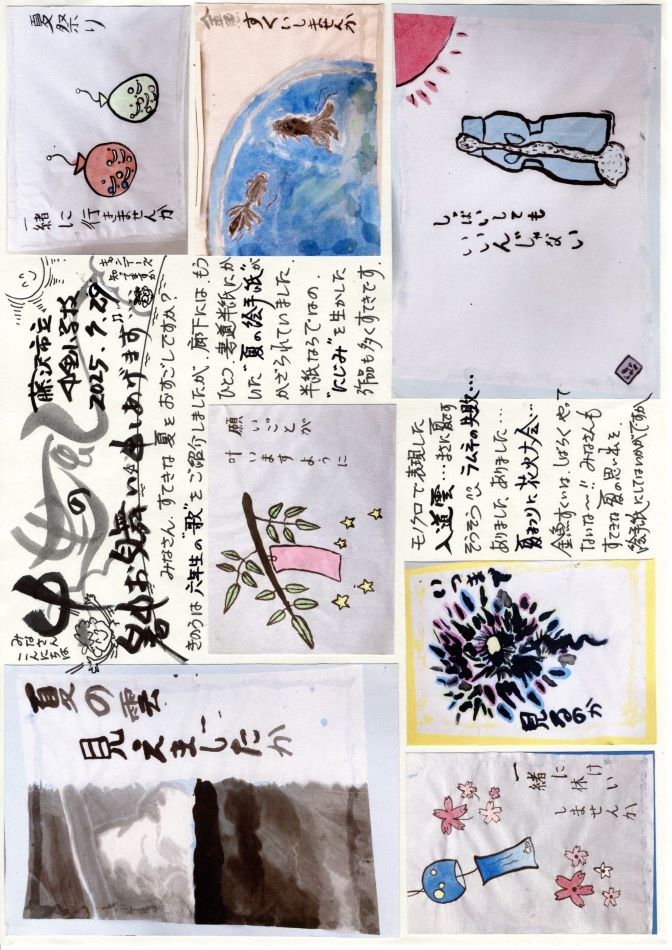 みなさん
こんにちは
中金の
暑中お見舞い申しあげます
藤沢市立
中金小学校
2025.7.29
知ってますか
みなさん、すてきな夏をおすごしですか？
きのうは六年生の"歌"をご紹介しましたが、廊下には、もう
ひとつ、書道半紙にか
いた"夏の絵手紙"が
かざられていました。
半紙ならではの、
"にじみ"を生かした
作品も多くすてきです。
モノクロで表現した
入道雲…また、夏です
そうそう!! ラムネの失敗…
ありました、ありました…
夏まつりに花火大会…
金魚すくいは、しばらくやって
ないな〜!! みなさんも
すてきな夏の思い出を
絵手紙にしてはいかがですか
夏の雲
見えましたか
願いごとが
叶いますように
夏祭り
一緒に行きませんか
金魚すくいしませんか
しっぱいしても
いいんじゃない
いつまで
見るのか
一緒に休けい
しませんか